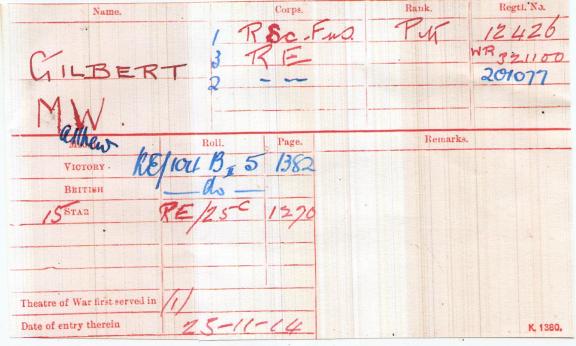 Name. Corps. Rank. Regtl. No.
1 R Sc. Fus. Pte 12426
GILBERT 3 R E WR 321100
2 — — 201077
M W
atthew
Roll. Page. Remarks.
VICTORY RE/104 B 5 1382
BRITISH — do —
15 STAR RE/25C 1270
Theatre of War first served in (1)
Date of entry therein 25-11-14
K. 1380.